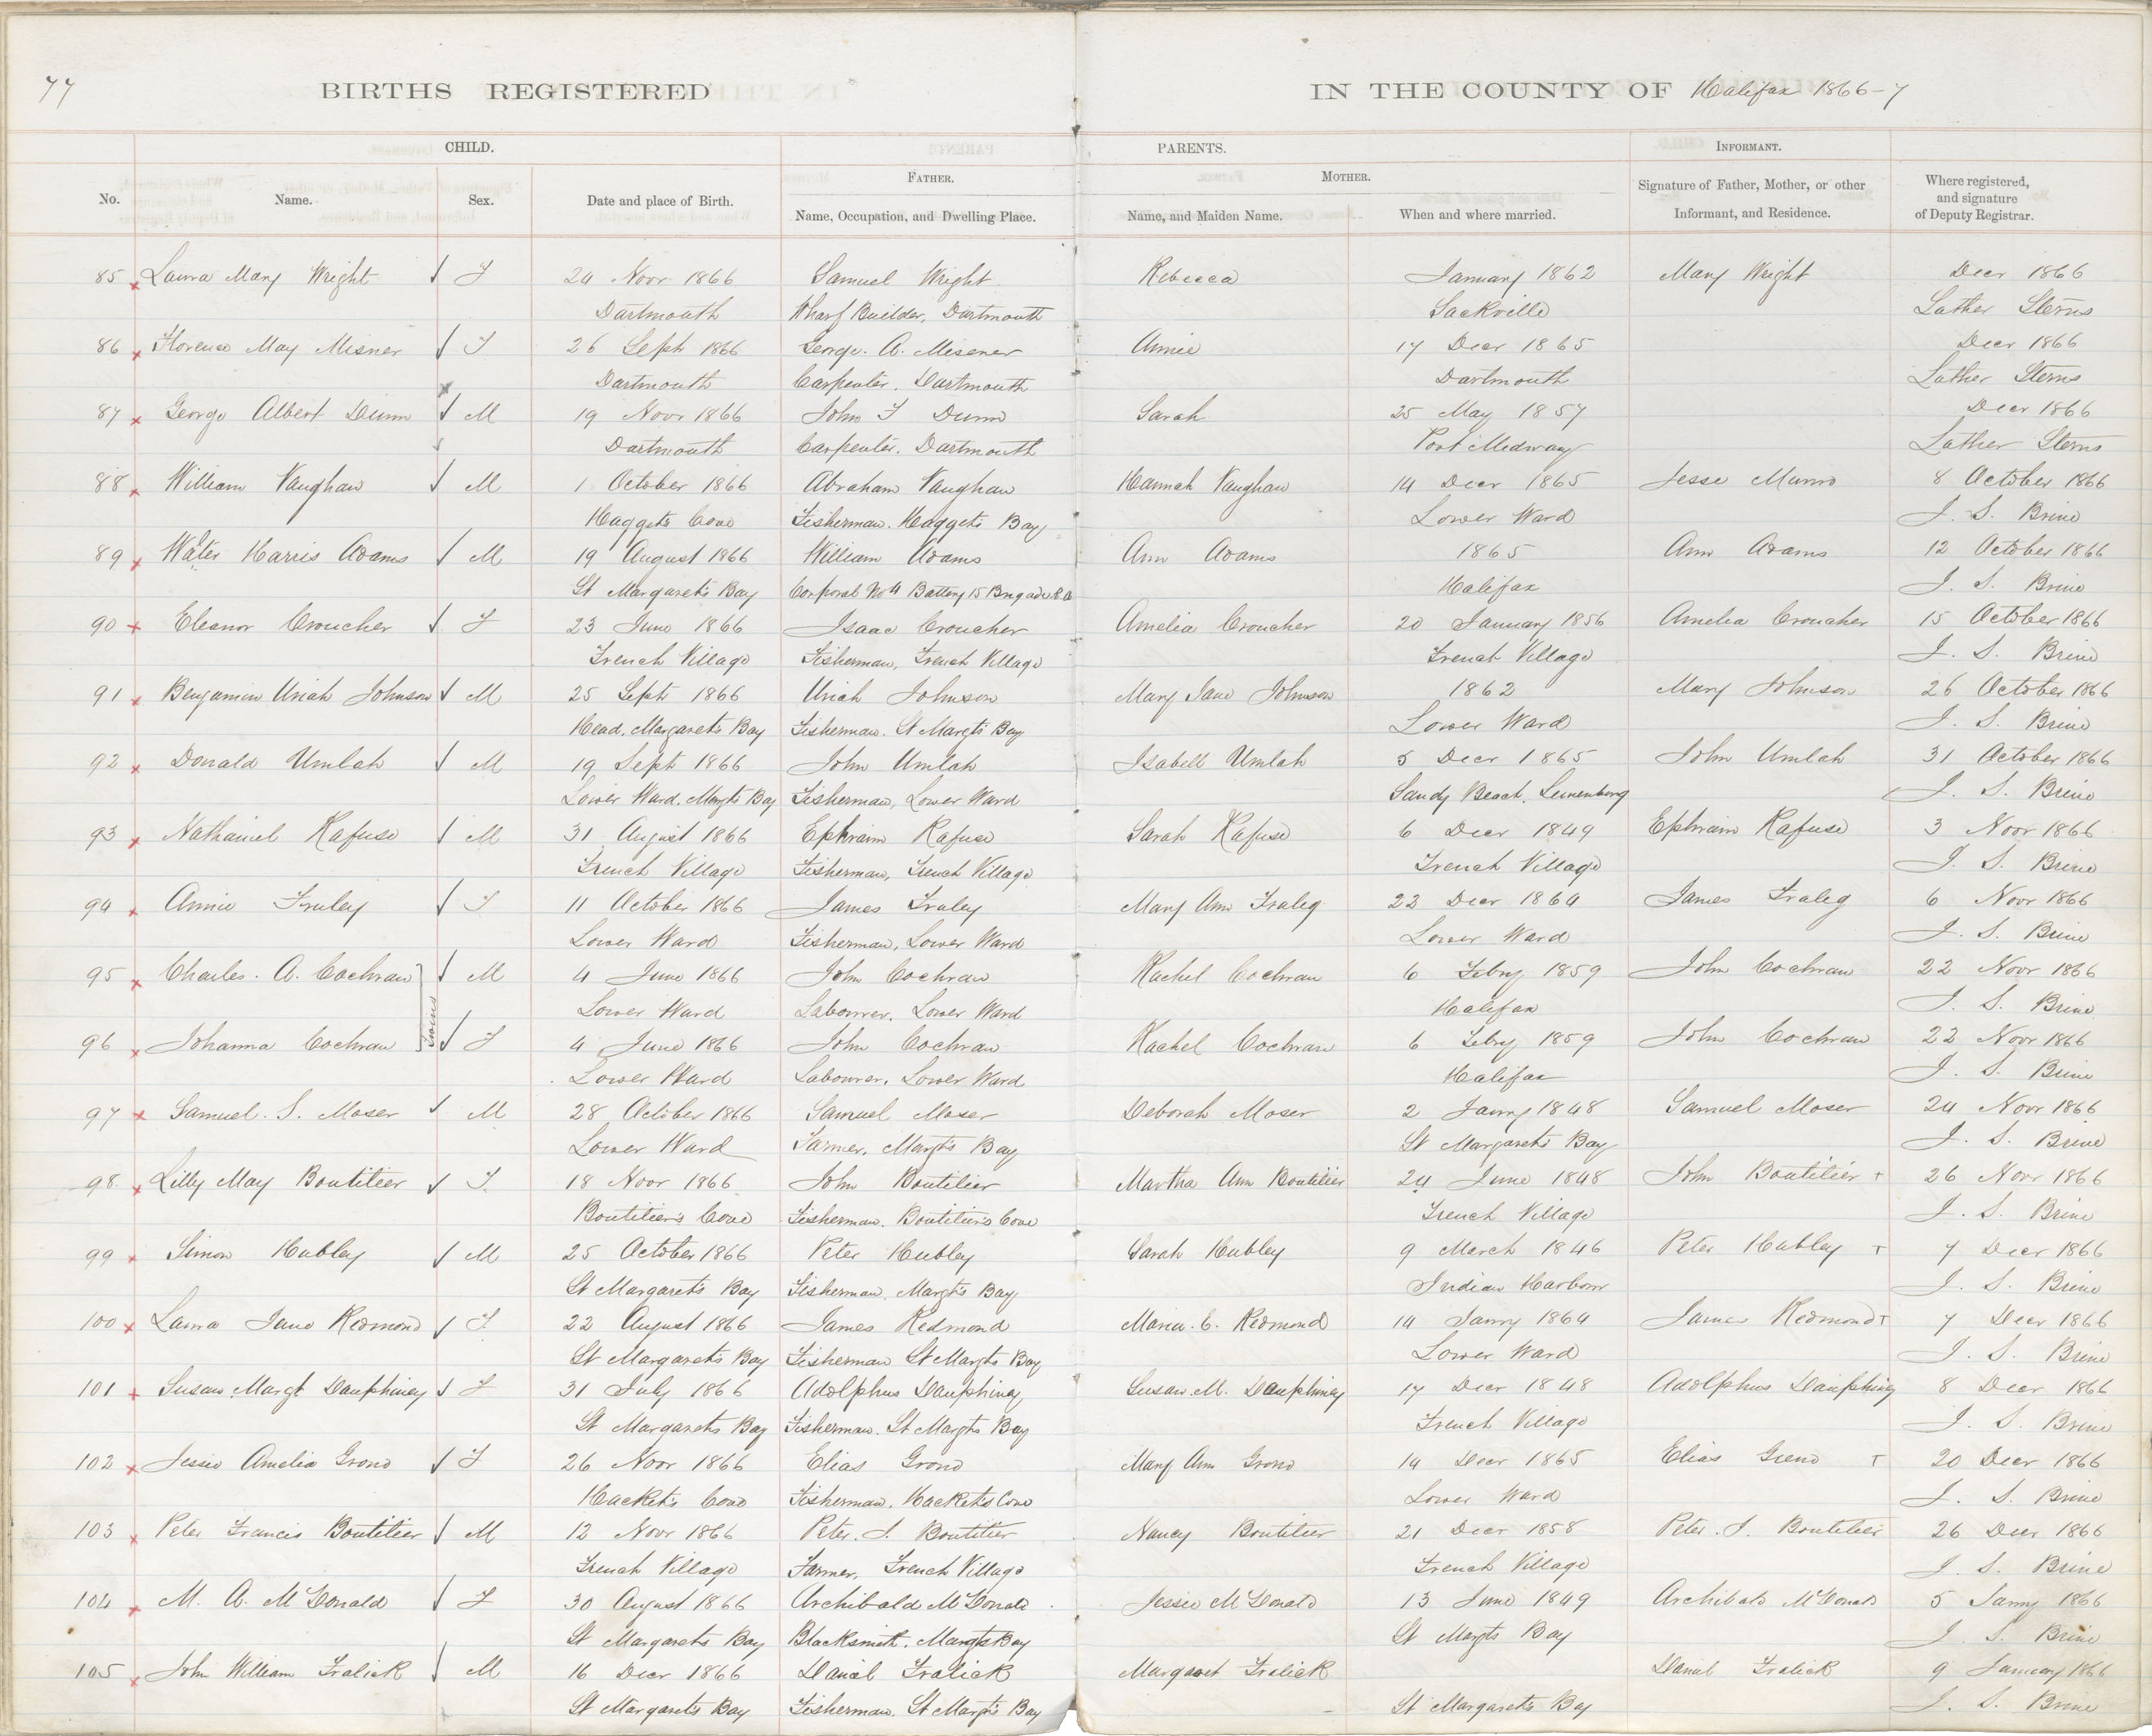 77
BIRTHS REGISTERED IN THE COUNTY OF Halifax 1866-7
CHILD. PARENTS. INFORMANT.
FATHER. MOTHER.
No. Name. Sex. Date and place of Birth. Name, Occupation, and Dwelling Place. Name, and Maiden Name. When and where married. Signature of Father, Mother, or other Informant, and Residence. Where registered, and signature of Deputy Registrar.
85 Laura Mary Wright F 24 Novr 1866 Samuel Wright Rebecca January 1862 Mary Wright Decr 1866
Dartmouth Wharf Builder, Dartmouth Sackville Luther Sterns
86 Florence May Misner F 26 Sept 1866 George. A. Misener Annie 17 Decr 1865 Decr 1866
Dartmouth Carpenter. Dartmouth Dartmouth Luther Sterns
87 George Albert Dunn M 19 Novr 1866 John F Dunn Sarah 25 May 1857 Decr 1866
Dartmouth Carpenter. Dartmouth Port Medway Luther Sterns
88 William Vaughan M 1 October 1866 Abraham Vaughan Hannah Vaughan 14 Decr 1865 Jesse Munro 8 October 1866
Haggets Cove Fisherman. Haggets Bay Lower Ward J. S. Brine
89 Walter Harris Adams M 19 August 1866 William Adams Ann Adams 1865 Ann Adams 12 October 1866
St Margaret's Bay Corporal No 4 Battery 15 Brigade R.A Halifax J. S. Brine
90 Eleanor Croucher F 23 June 1866 Isaac Croucher Amelia Croucher 20 January 1856 Amelia Croucher 15 October 1866
French Village Fisherman, French Village French Village J. S. Brine
91 Benjamin Uriah Johnson M 25 Sept 1866 Uriah Johnson Mary Jane Johnson 1862 Mary Johnson 26 October 1866
Head. Margaret's Bay Fisherman. St Margts Bay Lower Ward J. S. Brine
92 Donald Umlah M 19 Sept 1866 John Umlah Isabell Umlah 5 Decr 1865 John Umlah 31 October 1866
Lower Ward. Margts Bay Fisherman, Lower Ward Sandy Beach. Lunenburg J. S. Brine
93 Nathaniel Rafuse M 31 August 1866 Ephraim Rafuse Sarah Rafuse 6 Decr 1849 Ephraim Rafuse 3 Novr 1866
French Village Fisherman, French Village French Village J. S. Brine
94 Annie Fraley F 11 October 1866 James Fraley Mary Ann Fraleg 22 Decr 1864 James Fraleg 6 Novr 1866
Lower Ward Fisherman, Lower Ward Lower Ward J. S. Brine
95 Charles. A. Cochran M 4 June 1866 John Cochran Rachel Cochran 6 Febry 1859 John Cochran 22 Novr 1866
Twins Lower Ward Labourer. Lower Ward Halifax J. S. Brine
96 Johanna Cochran F 4 June 1866 John Cochran Rachel Cochran 6 Febry 1859 John Cochran 22 Novr 1866
Lower Ward Labourer. Lower Ward Halifax J. S. Brine
97 Samuel. S. Moser M 28 October 1866 Samuel Moser Deborah Moser 2 Janry 1848 Samuel Moser 24 Novr 1866
Lower Ward Farmer. Margts Bay St Margaret's Bay J. S. Brine
98 Lilly May Boutilier F 18 Novr 1866 John Boutilier Martha Ann Boutilier 24 June 1848 John Boutilier + 26 Novr 1866
Boutilier's Cove Fisherman. Boutilier's Cove French Village J. S. Brine
99 Simon Hubley M 25 October 1866 Peter Hubley Sarah Hubley 9 March 1846 Peter Hubley + 7 Decr 1866
St Margaret's Bay Fisherman. Margts Bay Indian Harbour J. S. Brine
100 Laura Jane Redmond F 22 August 1866 James Redmond Maria. E. Redmond 14 Janry 1864 James Redmond + 7 Decr 1866
St Margaret's Bay Fisherman St Margts Bay Lower Ward J. S. Brine
101 Susan Margt Dauphiney F 31 July 1866 Adolphus Dauphiney Susan. M. Dauphiney 17 Decr 1848 Adolphus Dauphiney 8 Decr 1866
St Margarets Bay Fisherman. St Margts Bay French Village J. S. Brine
102 Jessie Amelia Grono F 26 Novr 1866 Elias Grono Mary Ann Grono 14 Decr 1865 Elias Grono + 20 Decr 1866
Hackett's Cove Fisherman. Hacketts Cove Lower Ward J. S. Brine
103 Peter Francis Boutilier M 12 Novr 1866 Peter. J. Boutilier Nancy Boutilier 21 Decr 1858 Peter. J. Boutilier 26 Decr 1866
French Village Farmer, French Village French Village J. S. Brine
104 M. A. McDonald F 30 August 1866 Archibald McDonald Jessie McDonald 13 June 1849 Archibald McDonald 5 Janry 1866
St Margarets Bay Blacksmith. Margts Bay St Margts Bay J. S. Brine
105 John William Fralick M 16 Decr 1866 Daniel Fralick Margaret Fralick Daniel Fralick 9 January 1866
St Margaret's Bay Fisherman. St Margt's Bay St Margaret's Bay J. S. Brine